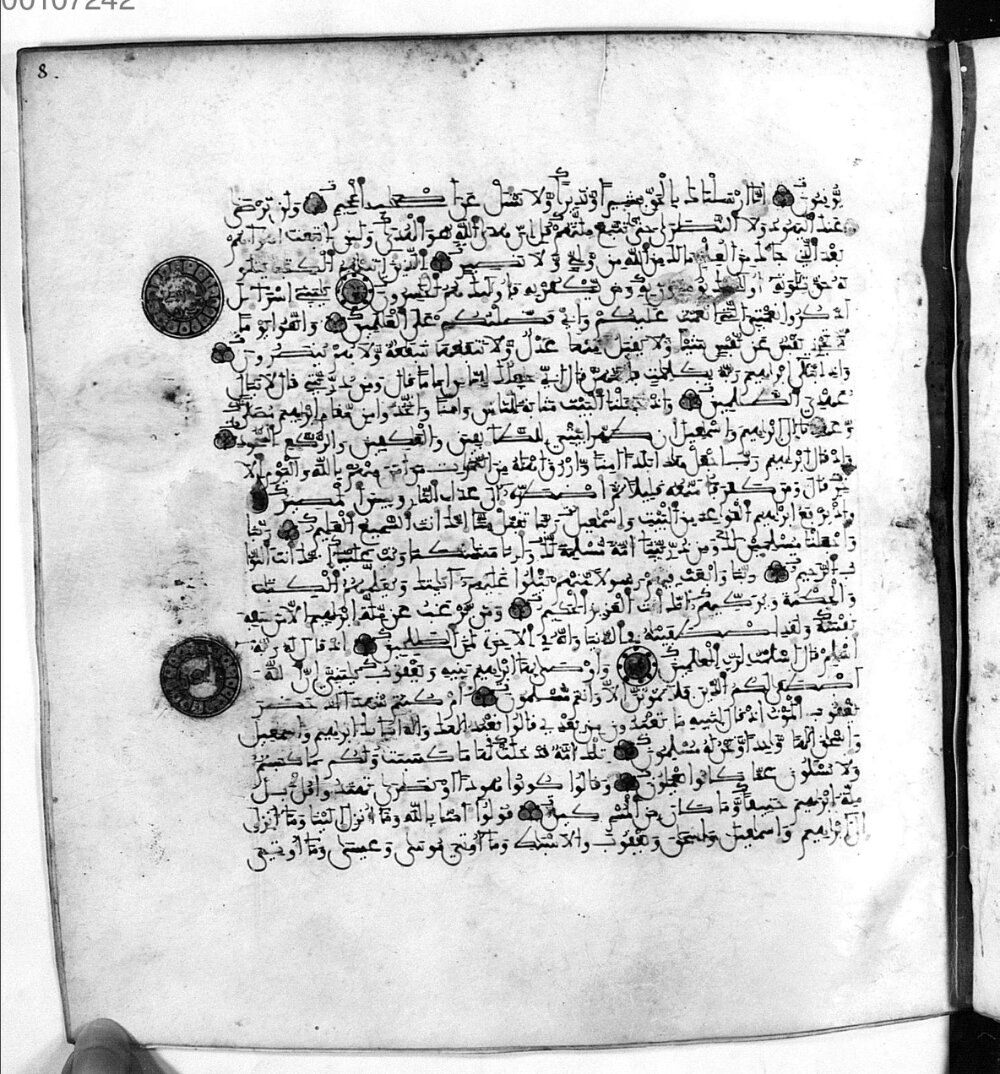 00107242
8.
يوقنون انا ارسلنك بالحق بشيرا ونذيرا ولا تسئل عن اصحب الجحيم ولن ترضى
عنك اليهود ولا النصرى حتى تتبع ملتهم قل ان هدى الله هو الهدى ولين اتبعت اهواءهم
بعد الذي جاءك من العلم مالك من الله من ولي ولا نصير الذين اتينهم الكتب يتلو
نه حق تلاوته اوليك يومنون به ومن يكفر به فاوليك هم الخسرون يبني اسراءيل
اذكروا نعمتي التي انعمت عليكم واني فضلتكم على العلمين واتقوا يوما
لا تجزي نفس عن نفس شيئا ولا يقبل منها عدل ولا تنفعها شفعة ولا هم ينصرون
واذ ابتلى ابرهيم ربه بكلمت فاتمهن قال اني جاعلك للناس اماما قال ومن ذريتي قال لا ينال
عهدي الظلمين واذ جعلنا البيت مثابة للناس وامنا واتخذوا من مقام ابرهيم مصلى
وعهدنا الى ابرهيم واسمعيل ان طهرا بيتي للطايفين والعكفين والركع السجود
واذ قال ابرهيم رب اجعل هذا بلدا امنا وارزق اهله من الثمرت من امن منهم بالله واليوم الا
خر قال ومن كفر فامتعه قليلا ثم اضطره الى عذاب النار وبيس المصير
واذ يرفع ابرهيم القواعد من البيت واسمعيل ربنا تقبل منا انك انت السميع العليم ربنا
واجعلنا مسلمين لك ومن ذريتنا امة مسلمة لك وارنا مناسكنا وتب علينا انك انت التوا
ب الرحيم ربنا وابعث فيهم رسولا منهم يتلوا عليهم ايتك ويعلمهم الكتب
والحكمة ويزكيهم انك انت العزيز الحكيم ومن يرغب عن ملة ابرهيم الا من سفه
نفسه ولقد اصطفينه في الدنيا وانه في الاخرة لمن الصلحين اذ قال له ربه
اسلم قال اسلمت لرب العلمين واوصى بها ابرهيم بنيه ويعقوب يبني ان الله
اصطفى لكم الدين فلا تموتن الا وانتم مسلمون ام كنتم شهداء اذ حضر
يعقوب الموت اذ قال لبنيه ما تعبدون من بعدي قالوا نعبد الهك واله ابايك ابرهيم واسمعيل
واسحق الها وحدا ونحن له مسلمون تلك امة قد خلت لها ما كسبت ولكم ما كسبتم
ولا تسئلون عما كانوا يعملون وقالوا كونوا هودا او نصرى تهتدوا قل بل
ملة ابرهيم حنيفا وما كان من المشركين قولوا امنا بالله وما انزل الينا وما انزل
الى ابرهيم واسمعيل واسحق ويعقوب والاسباط وما اوتي موسى وعيسى وما اوتي